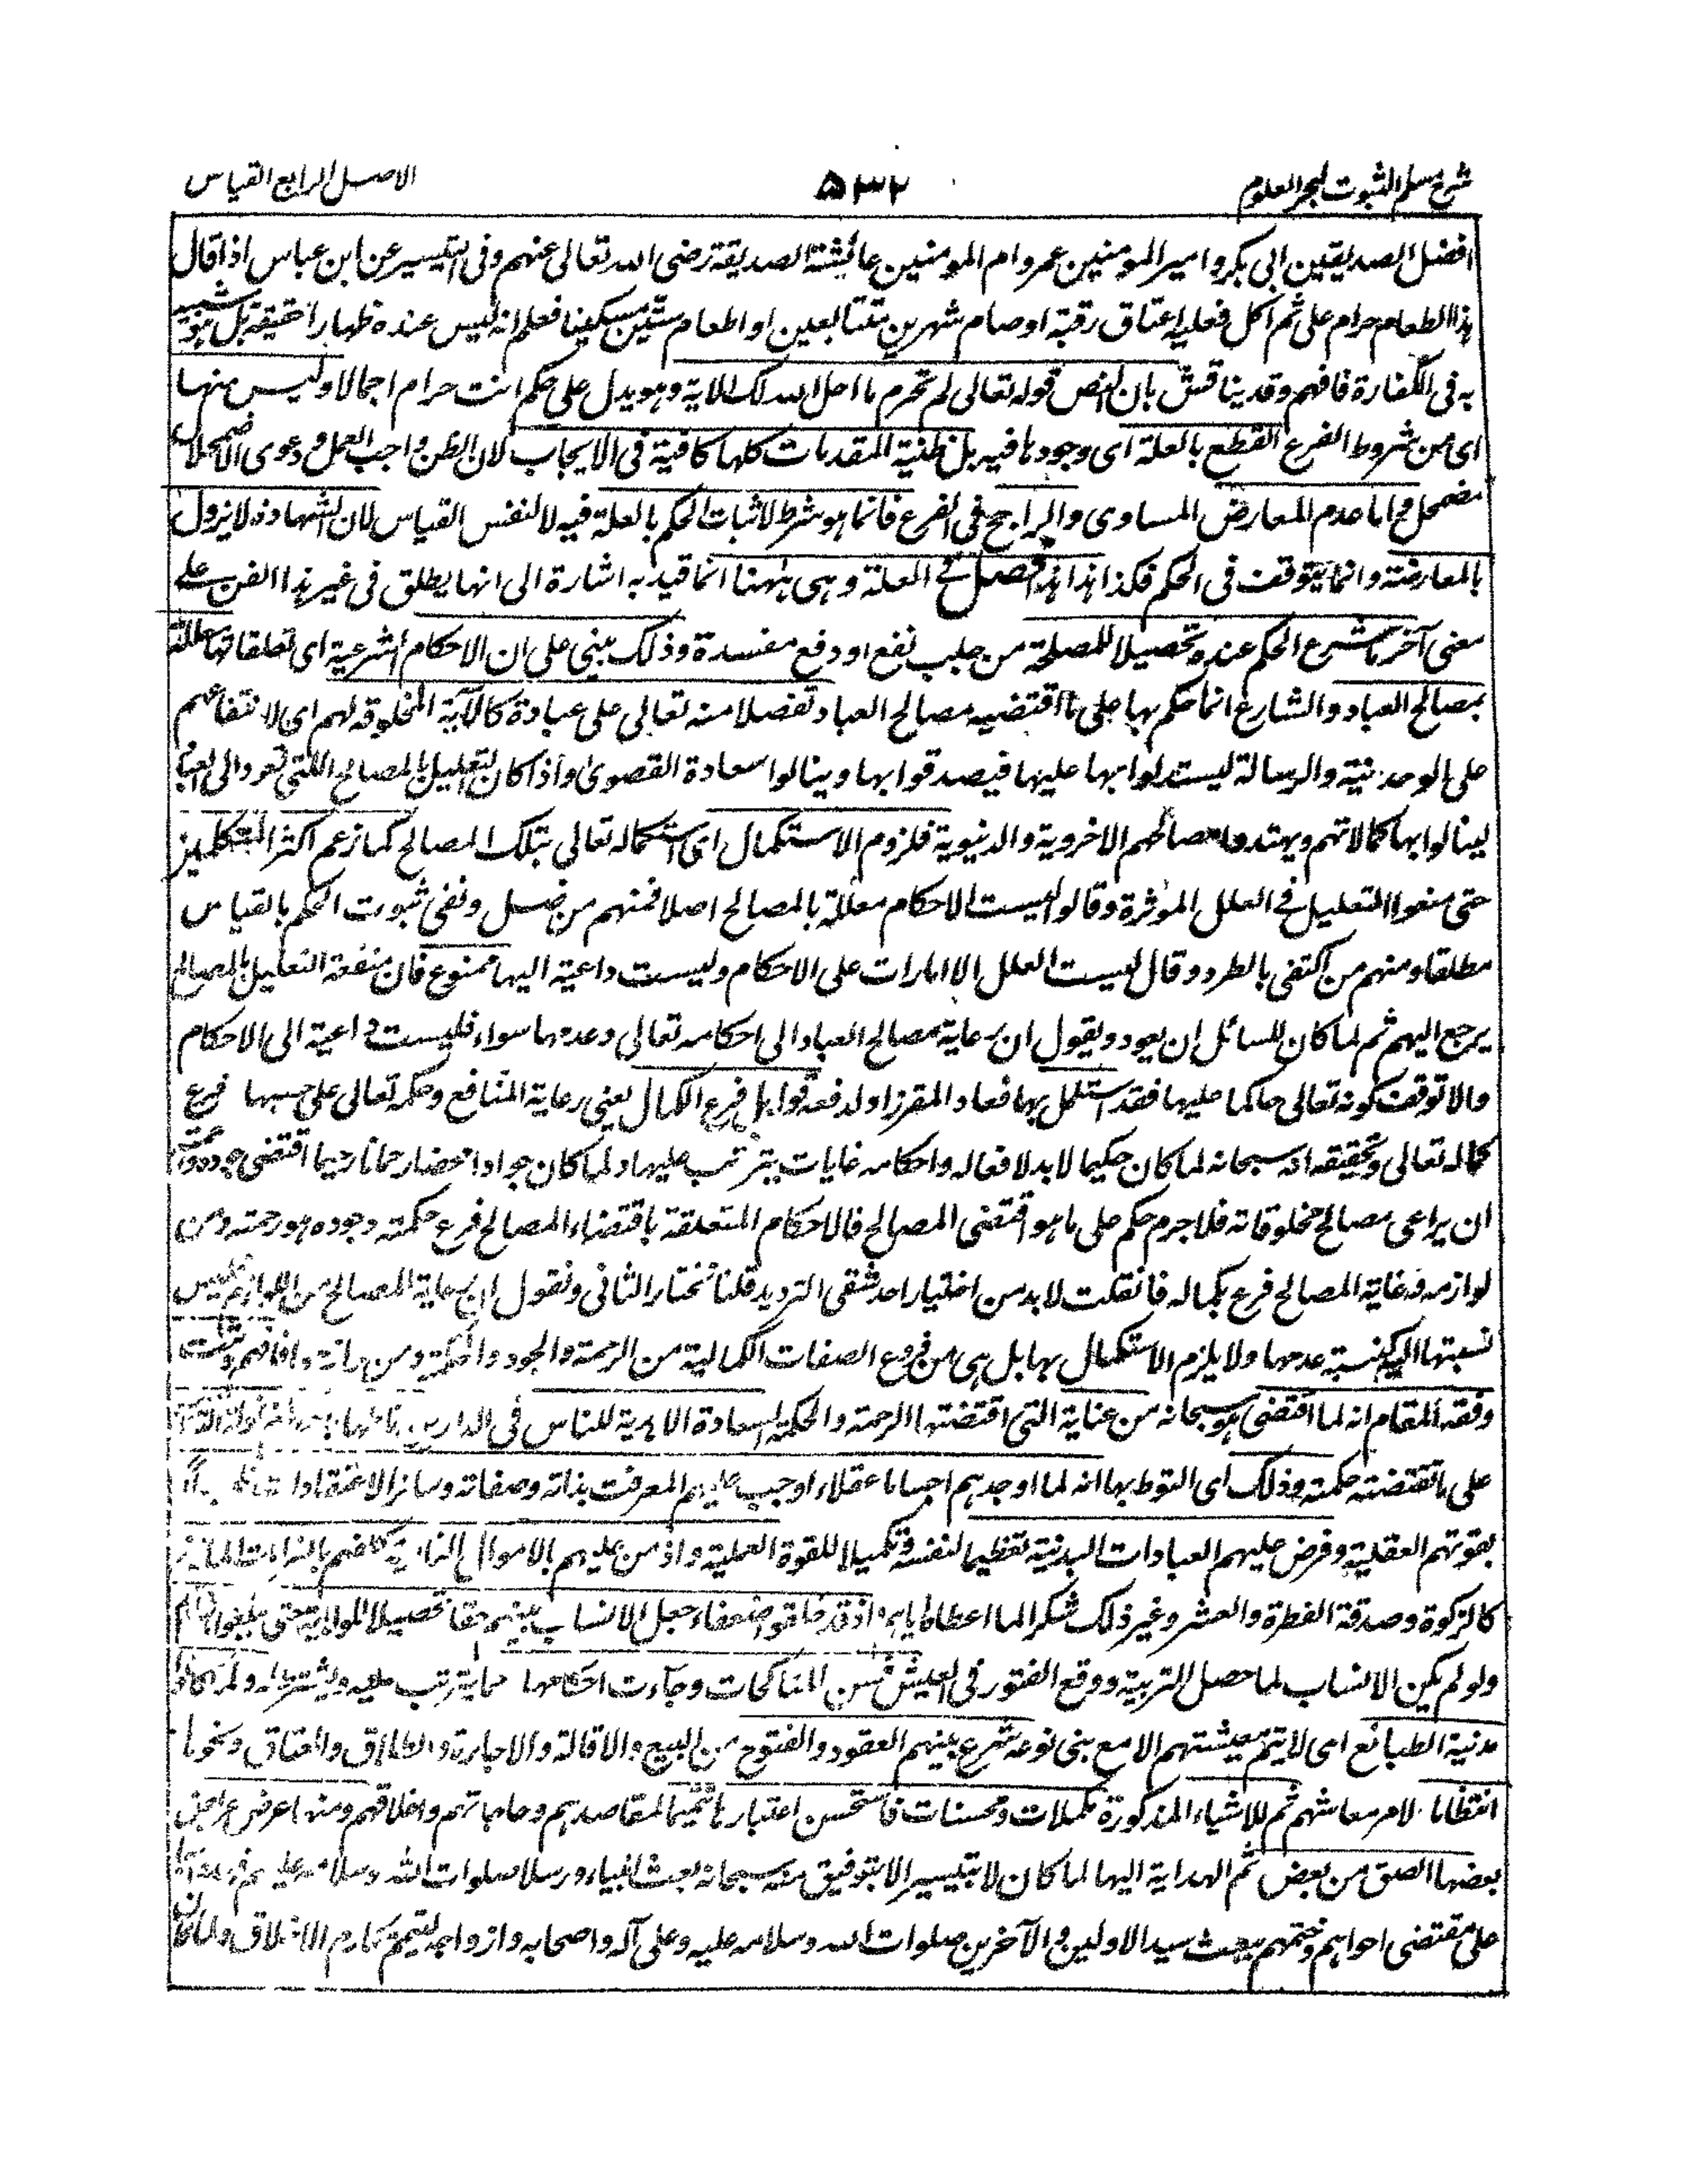 شرح مسلم الثبوت لبحر العلوم
۵۳۲
الاصل الرابع القياس
افضل الصديقين ابى بكر وامير المؤمنين عمر وام المومنين عائشة الصديقة رضى الله تعالى عنهم وفى التيسير عن ابن عباس اذا قال
هذا الطعام حرام على ثم اكل فعليه اعتاق رقبة او صام شهرين متتابعين او اطعام ستين مسكينا فعلم انه ليس عنده ظهارا حقيقة بل هو شبيه
به فى الكفارة فافهم وقد يناقش بان النص قوله تعالى لم تحرم ما احل الله لك الاية وهو يدل على حكم انت حرام اجمالا وليس منها
اى من شروط الفرع القطع بالعلة اى وجودها فيه بل ظنية المقدمات كلها كافية فى الايجاب لان الظن واجب العمل ودعوى الاضمحلال
مضمحل واما عدم المعارض المساوى والراجح فى الفرع فانما هو شرط لاثبات الحكم بالعلة فيه لا لنفس القياس لان الشهادة لا يزول
بالمعارضة وانما يتوقف فى الحكم فكذا هذا فصل فى العلة وهى ههنا انما قيد به اشارة الى انها يطلق فى غير هذا الفن على
معنى آخر ما شرع الحكم عنده تحصيلا للمصلحة من جلب نفع او دفع مفسدة وذلك مبنى على ان الاحكام الشرعية اى تعلقاتها معللة
بمصالح العباد والشارع انما حكم بها على ما اقتضيه مصالح العباد تفضلا منه تعالى على عبادة كالآية المخلوقة لهم اى لانتفاعهم
على الوحدنية والرسالة ليستدلوا بها عليها فيصدقوا بها وينالوا سعادة القصوى واذا كان التعليل بالمصالح اللتى تعود الى العباد
لينالوا بها كمالاتهم ويهتدوا مصالحهم الاخروية والدنيوية فلزوم الاستكمال اى استكماله تعالى بتلك المصالح كما زعم اكثر المتكلمين
حتى منعوا التعليل فى العلل الموثرة وقالوا ليست الاحكام معللة بالمصالح اصلا فمنهم من ضل ونفى ثبوت الحكم بالقياس
مطلقا ومنهم من اكتفى بالطرد وقال ليست العلل الا امارات على الاحكام وليست داعية اليها ممنوع فان منفعة التعليل بالمصالح
يرجع اليهم ثم لما كان للسائل ان يعود ويقول ان رعاية مصالح العباد الى احكامه تعالى وعدمها سواء فليست داعية الى الاحكام
والا توقف كونه تعالى حاكما عليها فقد استكمل بها فعاد المقرر اولا دفعه بل فرع الكمال يعنى رعاية المنافع وحكمه تعالى على حسبها فرع
كماله تعالى وتحقيقه انه سبحانه لما كان حكيما لابد لافعاله واحكامه غايات يترتب عليها ولما كان جوادا رحمانا رحيما اقتضى جوده
ان يراعى مصالح مخلوقاته فلا جرم حكم على ما هو اقتضى المصالح فالاحكام المتعلقة باقتضاء المصالح فرع حكمته وجوده ورحمته ومن
لوازمه ورعاية المصالح فرع بكماله فان قلت لا بد من اختيار احد شقى الترديد قلنا نختار الثانى ونقول ان رعاية المصالح من اللوازم فليس
نسبتها اليه كنسبة عدمها ولا يلزم الاستكمال بها بل هى من فروع الصفات الكمالية من الرحمة والجود والحكمة ومن فافهم وتثبت
وفقه المقام انه لما اقتضى هو سبحانه من عناية التى اقتضتها الرحمة والحكمة السعادة الابدية للناس فى الدارين
على ما تقتضته حكمته وذلك اى النوط بها انه لما اوجدهم اجساما عقلاء اوجب عليهم المعرفت بذاته وصفاته وسائر الاعتقادات
بقوتهم العقلية وفرض عليهم العبادات البدنية تعظيما لنفسه وتكميلا للقوة العملية واذ من عليهم بالاموال كلفهم
كالزكوة وصدقة الفطرة والعشر وغير ذلك شكرا لما اعطاه اياهم واذ قد خلقوا ضعفاء جعل الانساب بينهم حقا تحصيلا للولاية حتى يبلغوا
ولو لم يكن الانساب لما حصل التربية ووقع الفتور فى العيش فسن المناكحات وجاءت احكامها مما يترتب عليه ولما كانوا
مدنية الطبائع اى لا يتم معيشتهم الا مع بنى نوعه شرع بينهم العقود والفتوح من البيع والاقالة والاجارة والطلاق والعتاق ونحوها
انتظاما لامر معاشهم ثم للاشياء المذكورة مكملات ومحسنات فاستحسن اعتبارها تتميما لمقاصدهم وحاجاتهم واخلاقهم
بعضها الصق من بعض ثم الهداية اليها لما كان لا يتيسر الا بتوفيق منه سبحانه بعث انبياء ورسلا صلوات الله وسلامه عليهم
على مقتضى احوالهم وختمهم ببعث سيد الاولين والآخرين صلوات الله وسلامه عليه وعلى آله واصحابه وازواجه ليتمم مكارم الاخلاق ولما كان